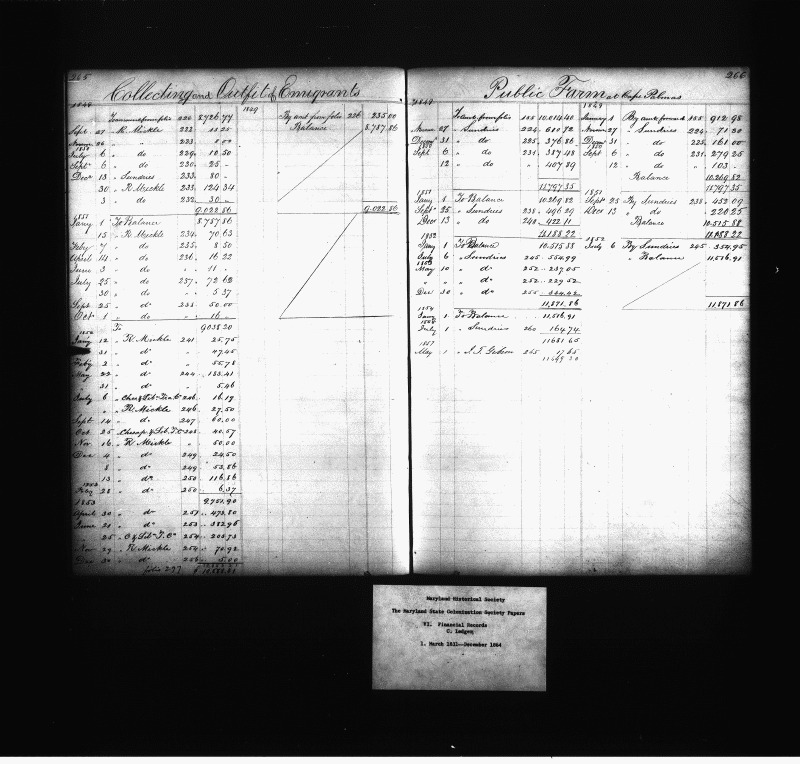 265
Collecting and Outfit of Emigrants
1849
226 8726.77
Sept. 27 " R. Mickle 222 11 25
" do 223 8.00
1850
July 6 " do 229 10.50
Sept 6 " do 230 25 "
Decr 13 " Sundries 233 80 "
30 " R Mickle 233 124 34
3 " do 232 30 "
9.022.86
1851
Jany 1 To Balance 8.787.86
15 " R Mickle 234 70 63
Feby 7 " do 235 8.50
March 14 " do 236 16 22
June 3 " do " 11 "
July 25 " do 237 72 62
30 " do " 5 37
Sept 25 " do 50.00
Oct 1 " do " 16 "
To 9038 20
1852
Jany 12 " R. Mickle 241 25.75
31 " do " 47.45
Feby 2 " do " 55.78
May 22 " do 244
31 " do " 5.46
July 6 16.19
" " R. Mickle 246 27.50
Sept 14 " do 247 60.00
Oct 25 40.57
Nov 16 " R Mickle " 50.00
Dec 4 " do 249 24.50
8 " do 249 53.86
13 " do 250 116.86
1853
Feby 28 " do 250 6.37
9.751.90
1853
April 30 " do 251 473.80
June 21 " do 253 382.96
25 254 205.73
Nov 29 " R. Mickle 254 70.92
5.00
folio 297
1849
By amt from folio 226 235.00
Balance 8.787.86
9.022.86
266
Public Farm at Cape Palmas
1849
To amt from folio 185 10.014.40
27 " Sundries 224 610 72
31 " do 225 376 86
1850
Sept 6 " do 231 387.48
12 " do " 407 89
11797.35
1851
Jany 1 To Balance 10.269 82
Sept 25 " Sundries 238 496 29
Dec 13 " do 240 422 11
11.188 22
1852
Jany 1 To Balance 10.515 88
July 6 " Sundries 245 554.99
1853
May 10 " do 252 237.05
" " " do 252 229.52
Dec 30 " do 255
11,871.86
1854
Jany 1 To Balance 11,516.91
July 1 " Sundries 260 164 74
11681 65
1857
May 1 265 17.65
1849
January 1 By amt from fo 185 912.98
27 " Sundries 224 71 50
31 " do 225 161 00
1850
Sept 6 " do 231 279 25
12 " do " 103 "
Balance 10.269 82
11797.35
1851
Sept 25 By Sundries 238 452 09
Dec 13 " do " 220 25
Balance 10.515 88
11.188 22
1852
July 6 By Sundries 245 354.95
" Balance 11,516.91
11,871 86
Maryland Historical Society
The Maryland State Colonization Society Papers
VI. Financial Records
C. Ledger
1. March 1831--December 1864